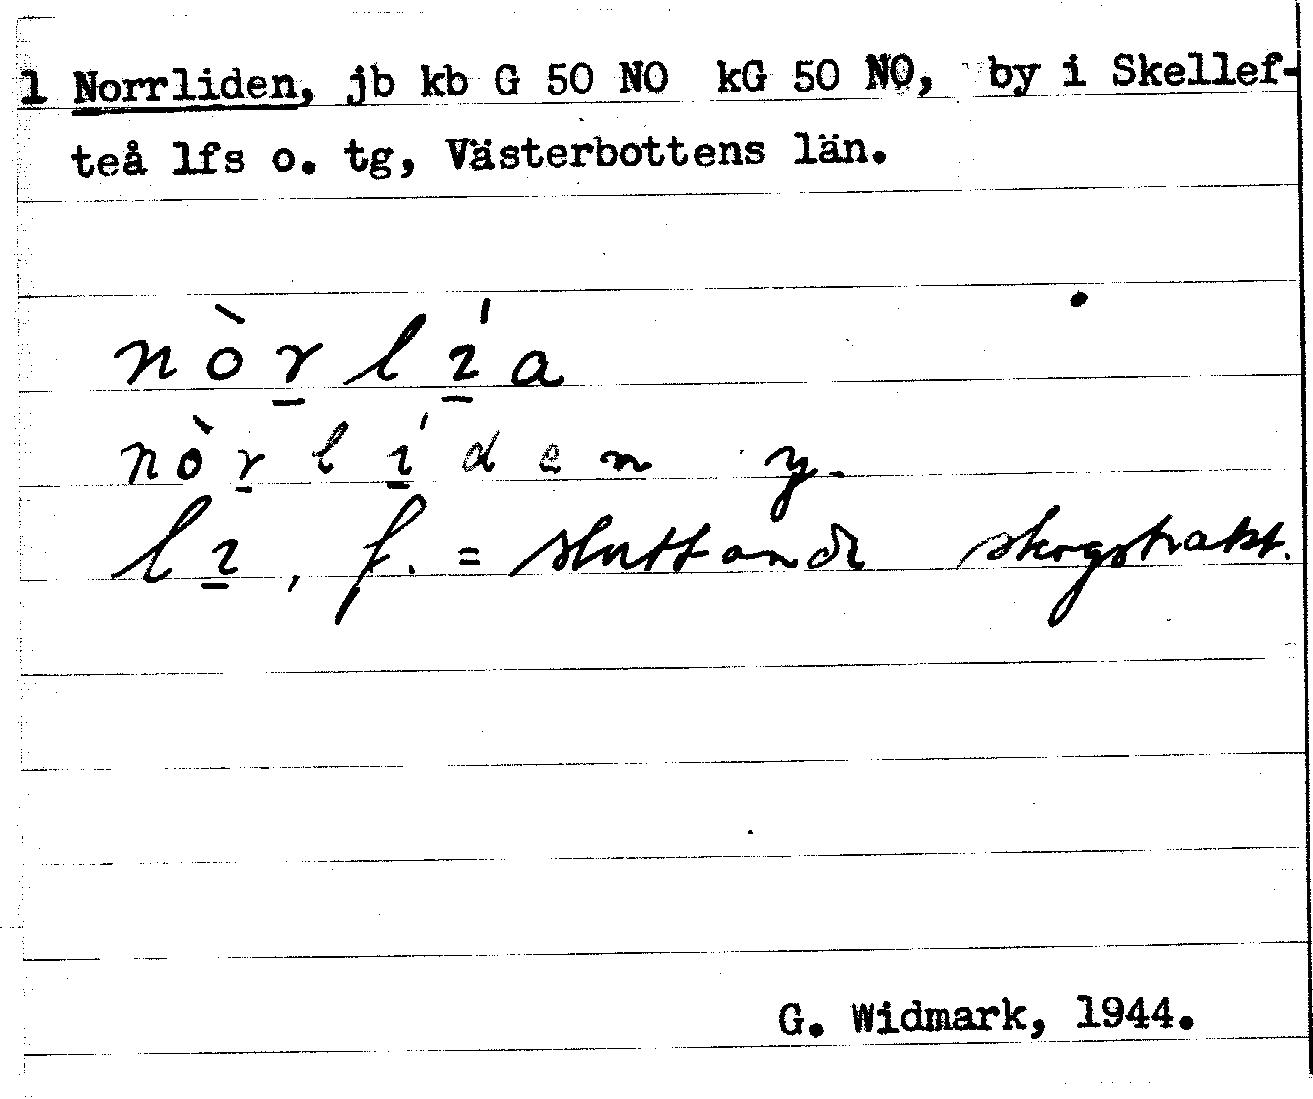 1 Norrliden, jb kb G 50 NO kG 50 NO, by i Skellef-
teå lfs o. tg, Västerbottens län.
nòr̲lı̲́a
nòr̲lı̲́den y.
lı̲, f. = sluttande skogstrakt.
G. Widmark, 1944.